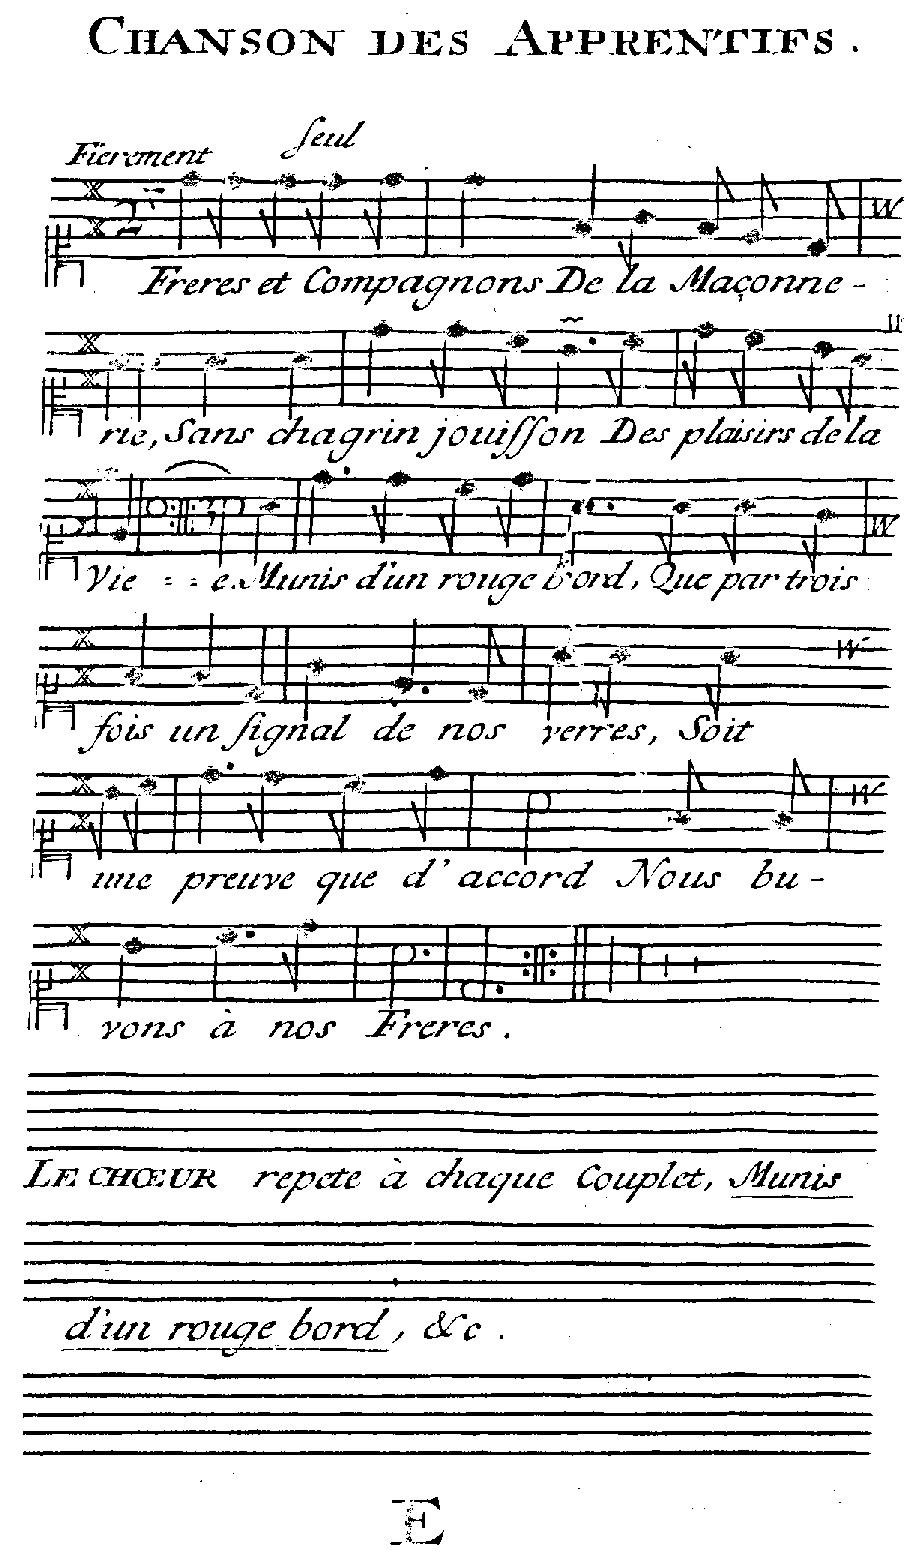 CHANSON DES APPRENTIFS.
Fierement Seul
Freres et Compagnons De la Maçonne-
rie, Sans chagrin jouisson Des plaisirs de la
Vie - - e. Munis d'un rouge bord, Que par trois
fois un signal de nos verres, Soit
une preuve que d'accord Nous bu-
vons à nos Freres.
LE CHŒUR repete à chaque Couplet, Munis
d'un rouge bord, &c.
E